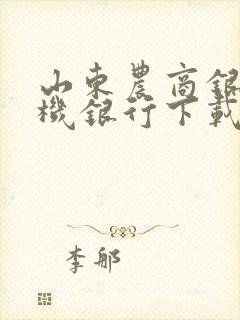 山東農商銀
機銀行下載
李郍